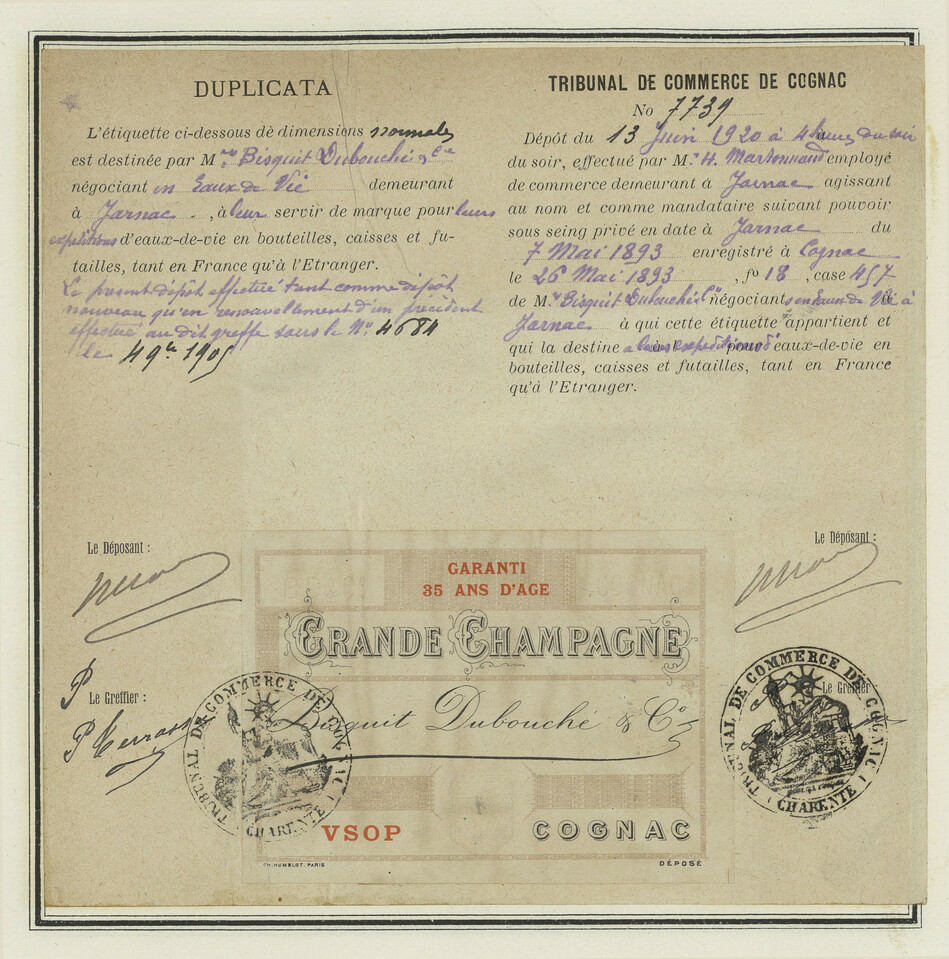 DUPLICATA
L'étiquette ci-dessous de dimensions normales
est destinée par M.rs Bisquit Dubouché & Cie
négociant en Eaux de Vie demeurant
à Jarnac, à leur servir de marque pour leurs
expéditions d'eaux-de-vie en bouteilles, caisses et fu-
tailles, tant en France qu'à l'Etranger.
Le présent dépôt effectué tant comme dépôt
nouveau qu'en renouvellement d'un précédent
effectué au dit greffe sous le No. 4684
le 4 9bre 1905
TRIBUNAL DE COMMERCE DE COGNAC
No 7739
Dépôt du 13 Juin 1920 à 4 heures du soir
du soir, effectué par M.r H. employé
de commerce demeurant à Jarnac agissant
au nom et comme mandataire suivant pouvoir
sous seing privé en date à Jarnac du
7 Mai 1893 enregistré à Cognac
le 26 Mai 1893, fo 18, case 457
de M.rs Bisquit Dubouché & Cie négociants en Eaux de Vie à
Jarnac à qui cette étiquette appartient et
qui la destine à leurs expéditions d'eaux-de-vie en
bouteilles, caisses et futailles, tant en France
qu'à l'Etranger.
Le Déposant :
Le Déposant :
GARANTI
35 ANS D'AGE
GRANDE CHAMPAGNE
Bisquit Dubouché & Co
VSOP
COGNAC
CH. HUMBLOT. PARIS
DÉPOSÉ
Le Greffier :
TRIBUNAL DE COMMERCE DE COGNAC
CHARENTE
Le Greffier
TRIBUNAL DE COMMERCE DE COGNAC
CHARENTE